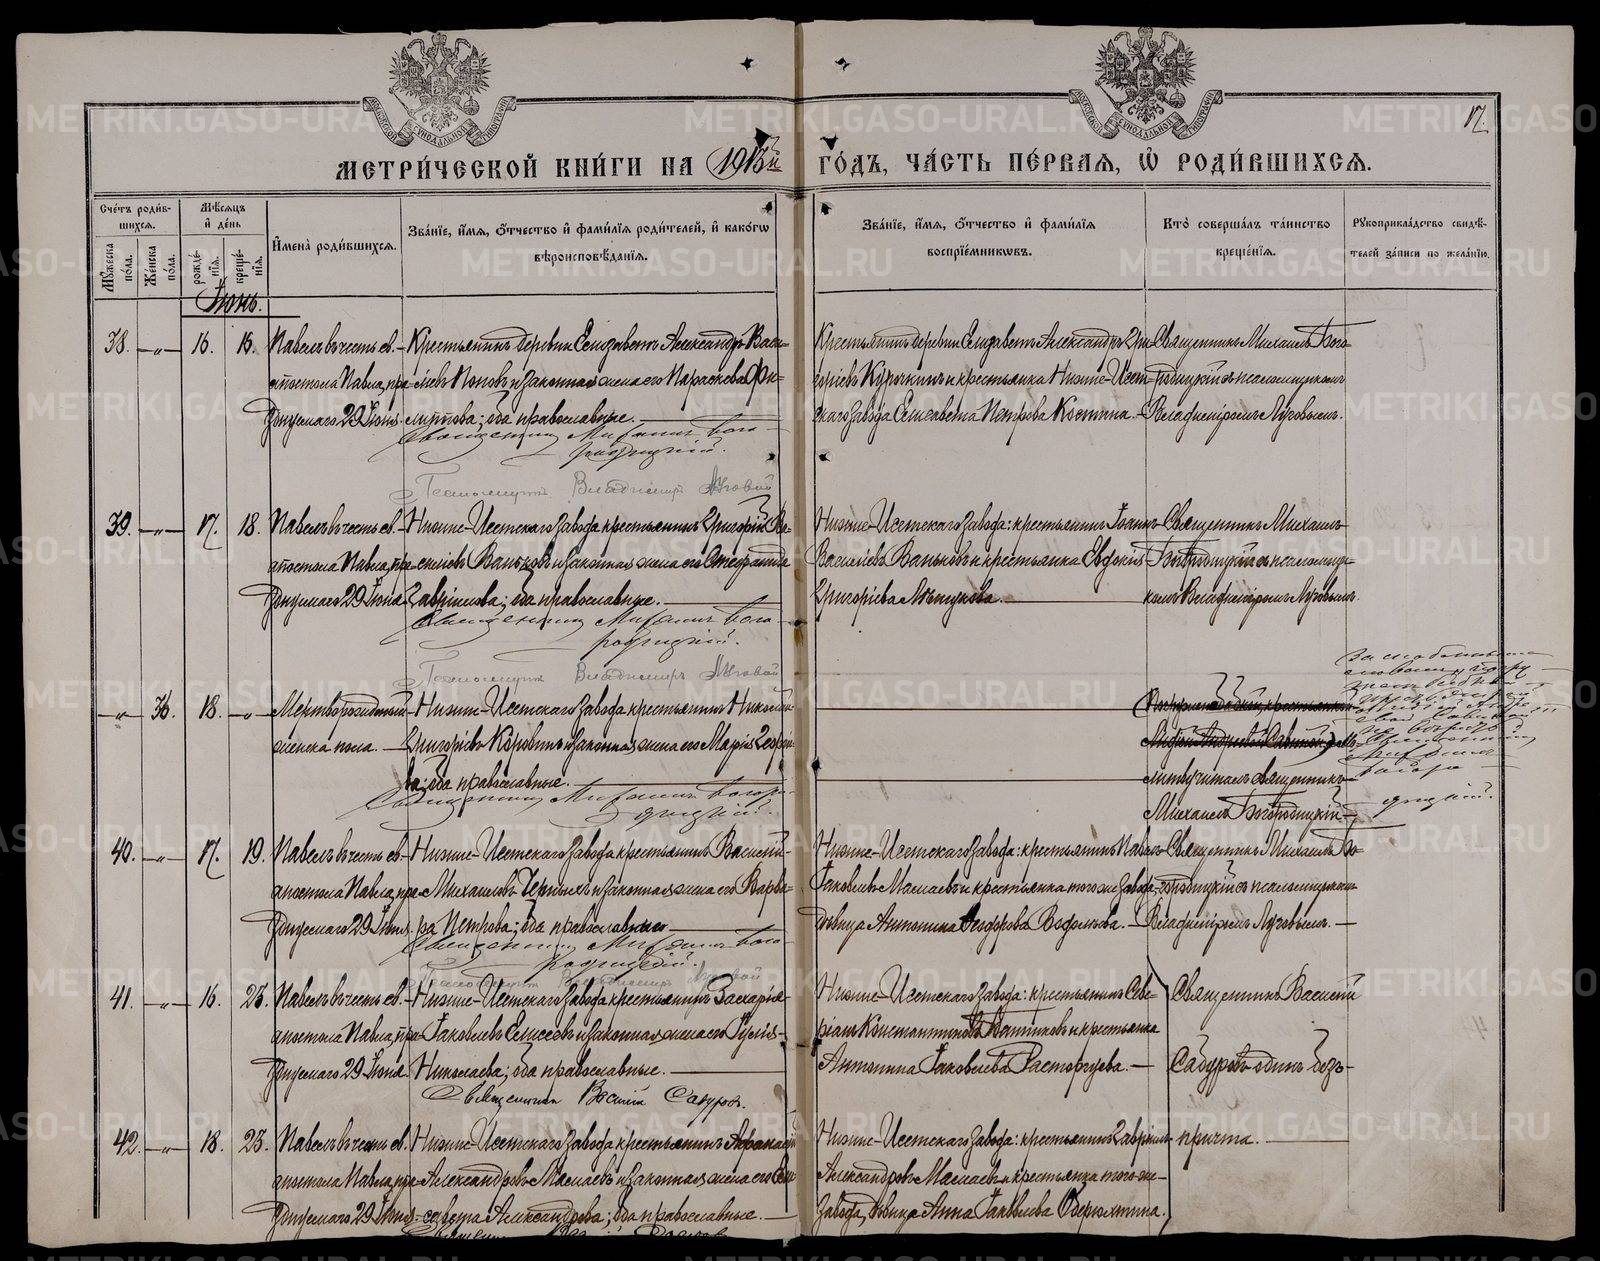 17
МЕТРИ́ЧЕСКОЙ КНИ́ГИ НА 1913й ГО́ДЪ, ЧА́СТЬ ПЕ́РВАЯ, Ѡ҆ РОДИ́ВШИХСЯ.
Сче́тъ роди́вшихся.
Мꙋ́жеска по́ла.
Же́нска по́ла.
Мѣ́сяцъ и҆ де́нь
рожде́нїя.
креще́нїя.
И҆мена̀ роди́вшихся.
Зва́нїе, и҆́мя, ѻ҆́тчество и҆ фами́лїя роди́телей, и҆ како́гѡ
вѣроисповѣ́данїя.
Зва́нїе, и҆́мя, ѻ҆́тчество и҆ фами́лїя
воспрїе́мникѡвъ.
Кто̀ соверша́лъ та́инство
креще́нїя.
Рꙋкоприкла́дство свидѣ́телей за́писи по жела́нїю.
Іюнь.
38. —„— 16. 16.
Павелъ въ честь св.
апостола Павла, пра
зднуемаго 29 Іюня.
Крестьянинъ деревни Елизаветъ Александръ Васи-
льевъ Поповъ и законная жена его Параскева Фи-
липпова; оба православные.
Священникъ Михаилъ Бого-
родицкій.
Псаломщикъ Владиміръ Луговой
Крестьянинъ деревни Елизаветъ Александръ Гри-
горіевъ Курочкинъ и крестьянка Нижне-Исет-
скаго завода Елисавета Петрова Костина.
Священникъ Михаилъ Бого-
родицкій съ псаломщикомъ
Владиміромъ Луговымъ.
39. —„— 17. 18.
Павелъ въ честь св.
апостола Павла, пра
зднуемаго 29 Іюня
Нижне-Исетскаго завода крестьянинъ Григорій Ва-
сильевъ Ваньковъ и законная жена его Стефанида
Гавріилова; оба православные.
Священникъ Михаилъ Бого-
родицкій.
Псаломщикъ Владиміръ Луговой
Нижне-Исетскаго завода: крестьянинъ Іоаннъ
Васильевъ Ваньковъ и крестьянка Евдокія
Григоріева
Священникъ Михаилъ
Богородицкій съ псаломщи-
комъ Владиміромъ Луговымъ.
—„— 36. 18. —„—
Мертворожденный
женска пола.
Нижне-Исетскаго завода крестьянинъ Николай
Григорьевъ Коровинъ и законная жена его Марія Георгіе-
ва; оба православные.
Священникъ Михаилъ Богоро-
дицкій.
Андреевой Савиной
священникъ
Михаилъ Богородицкій
40. —„— 17. 19.
Павелъ въ честь св.
апостола Павла, пра
зднуемаго 29 Іюня
Нижне-Исетскаго завода крестьянинъ Василій
Михаиловъ Черныхъ и законная жена его Варва-
ра Петрова; оба православные
Священникъ Михаилъ Бого-
родицкій.
Псаломщикъ Владиміръ Луговой
Нижне-Исетскаго завода: крестьянинъ Павелъ
Іаковлевъ Масаевъ и крестьянка того же завода,
дѣвица Антонина Ѳеодорова
Священникъ Михаилъ Бо-
городицкій съ псаломщикомъ
Владиміромъ Луговымъ.
41. —„— 16. 23.
Павелъ въ честь св.
апостола Павла, пра
зднуемаго 29 Іюня
Нижне-Исетскаго завода крестьянинъ Захарія
Іаковлевъ Елисеевъ и законная жена его Іулія
Николаева; оба православные.
Священникъ Василій Садуровъ.
Нижне-Исетскаго завода: крестьянинъ Севе-
ріанъ Константиновъ и крестьянка
Антонина Іаковлева Расторгуева.
Священникъ Василій
Садуровъ одинъ безъ
42. —„— 18. 23.
Павелъ въ честь св.
апостола Павла, пра
зднуемаго 29 Іюня
Нижне-Исетскаго завода крестьянинъ Аѳанасій
Александровъ Масаевъ и законная жена его Ели-
савета Александрова; оба православные.
Нижне-Исетскаго завода: крестьянинъ Гавріилъ
Александровъ Масаевъ и крестьянка того же
завода, дѣвица Анна Іаковлева Оберюхтина.
причта.
METRIKI.GASO-URAL.RU